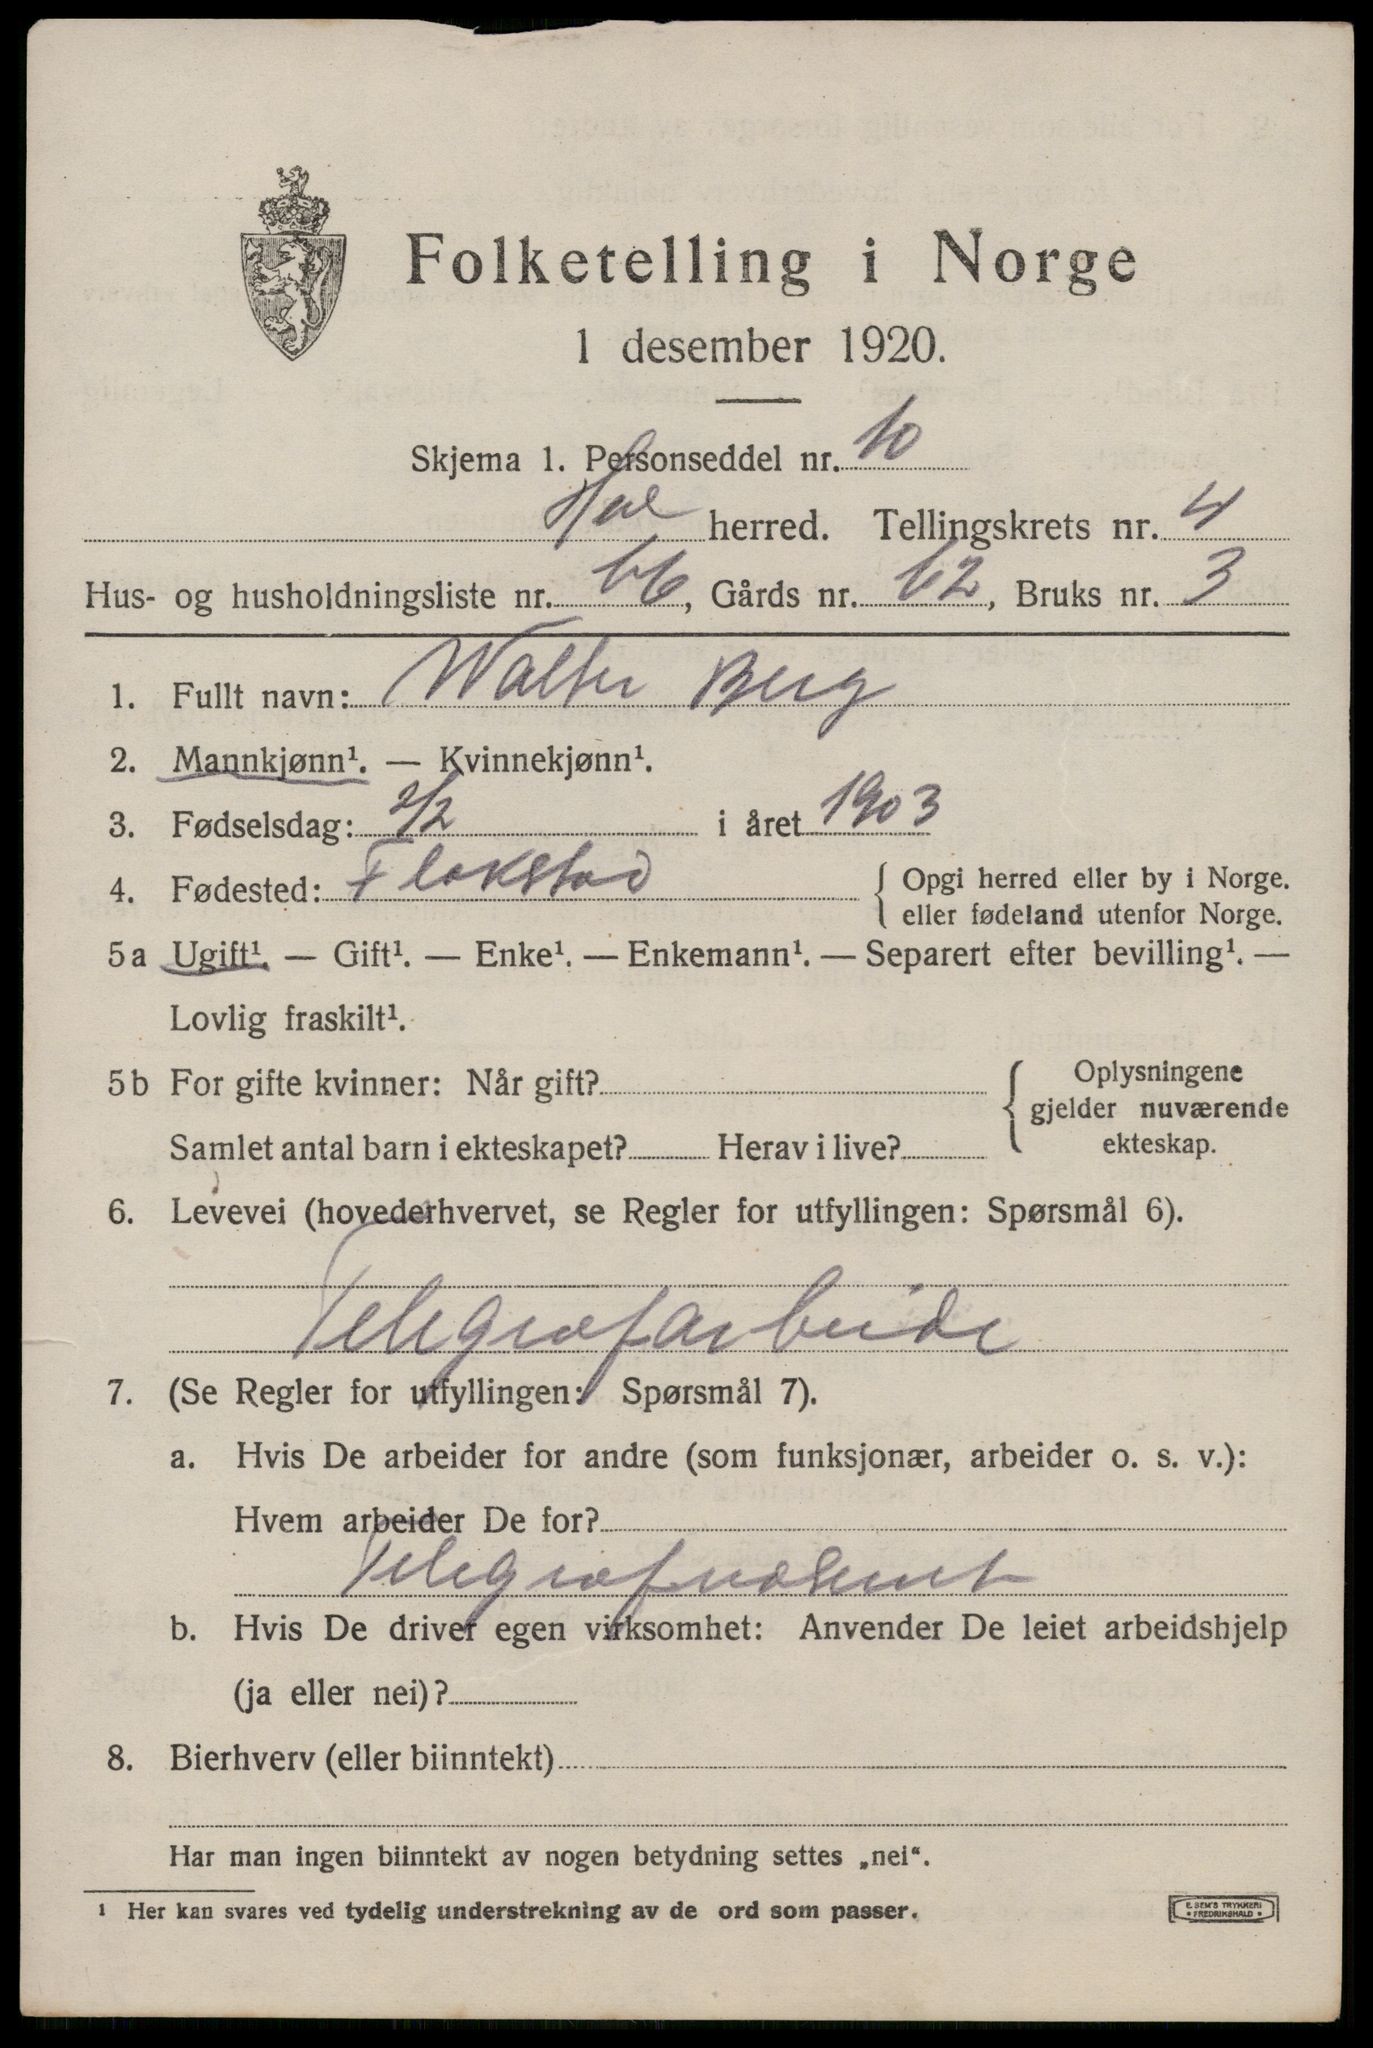 Folketelling i Norge
1 desember 1920.
Skjema 1. Personseddel nr. 10
Hol herred. Tellingskrets nr. 4
Hus- og husholdningsliste nr. 66, Gårds nr. 62, Bruks nr. 3
1. Fullt navn: Walter Berg
2. Mannkjønn¹. — Kvinnekjønn¹.
3. Fødselsdag: 2/2 i året 1903
4. Fødested: Flakstad { Opgi herred eller by i Norge.
eller fødeland utenfor Norge.
5a Ugift¹. — Gift¹. — Enke¹. — Enkemann¹. — Separert efter bevilling¹. —
Lovlig fraskilt¹.
5b For gifte kvinner: Når gift? { Oplysningene
gjelder nuværende
ekteskap.
Samlet antal barn i ekteskapet? Herav i live?
6. Levevei (hovederhvervet, se Regler for utfyllingen: Spørsmål 6).
Telegrafarbeide
7. (Se Regler for utfyllingen: Spørsmål 7).
a. Hvis De arbeider for andre (som funksjonær, arbeider o. s. v.):
Hvem arbeider De for?
Telegrafvesenet
b. Hvis De driver egen virksomhet: Anvender De leiet arbeidshjelp
(ja eller nei)?
8. Bierhverv (eller biinntekt)
Har man ingen biinntekt av nogen betydning settes „nei“.
¹ Her kan svares ved tydelig understrekning av de ord som passer.
E. SEM'S TRYKKERI
• FREDRIKSHALD •